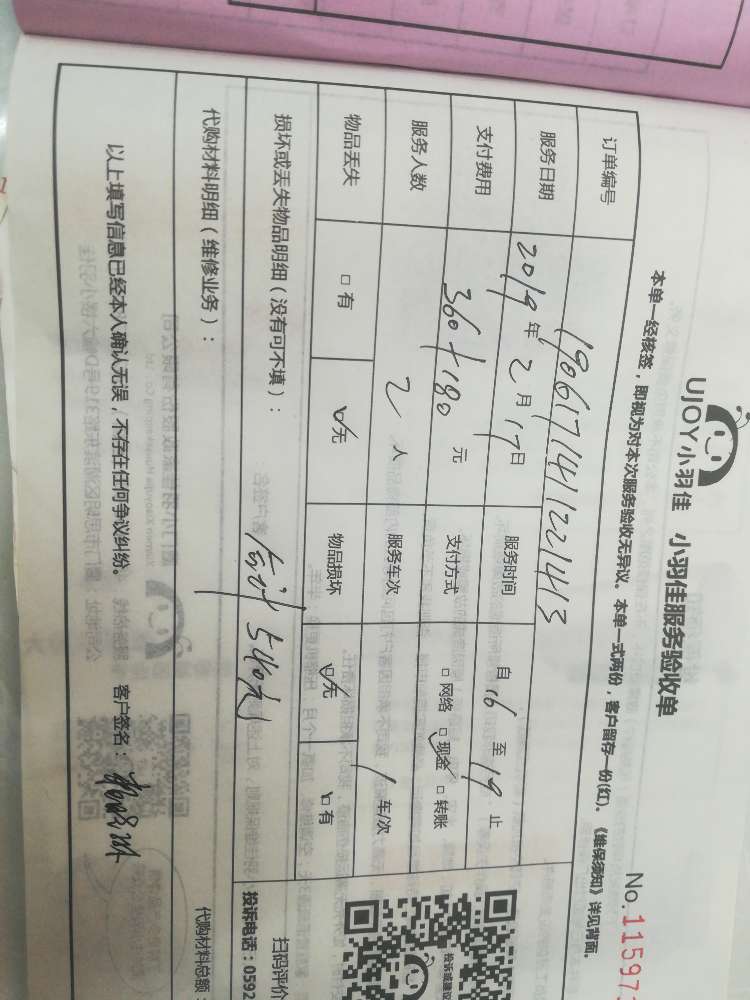 UJOY小羽佳 小羽佳服务验收单
No.11597
本单一经核签，即视为对本次服务验收无异议。本单一式两份，客户留存一份(红)。《维保须知》详见背面。
订单编号 190617141221413
服务日期 2019年2月17日 服务时间 自16至19止
支付费用 360+180元 支付方式 □网络 ☑现金 □转账
服务人数 2人 服务车次 1车/次
物品丢失 □有 ☑无 物品损坏 ☑无 □有
损坏或丢失物品明细（没有可不填）：
合计540元
扫码评价
投诉电话：0592
代购材料明细（维修业务）：
代购材料总额：
以上填写信息已经本人确认无误，不存在任何争议纠纷。 客户签名：